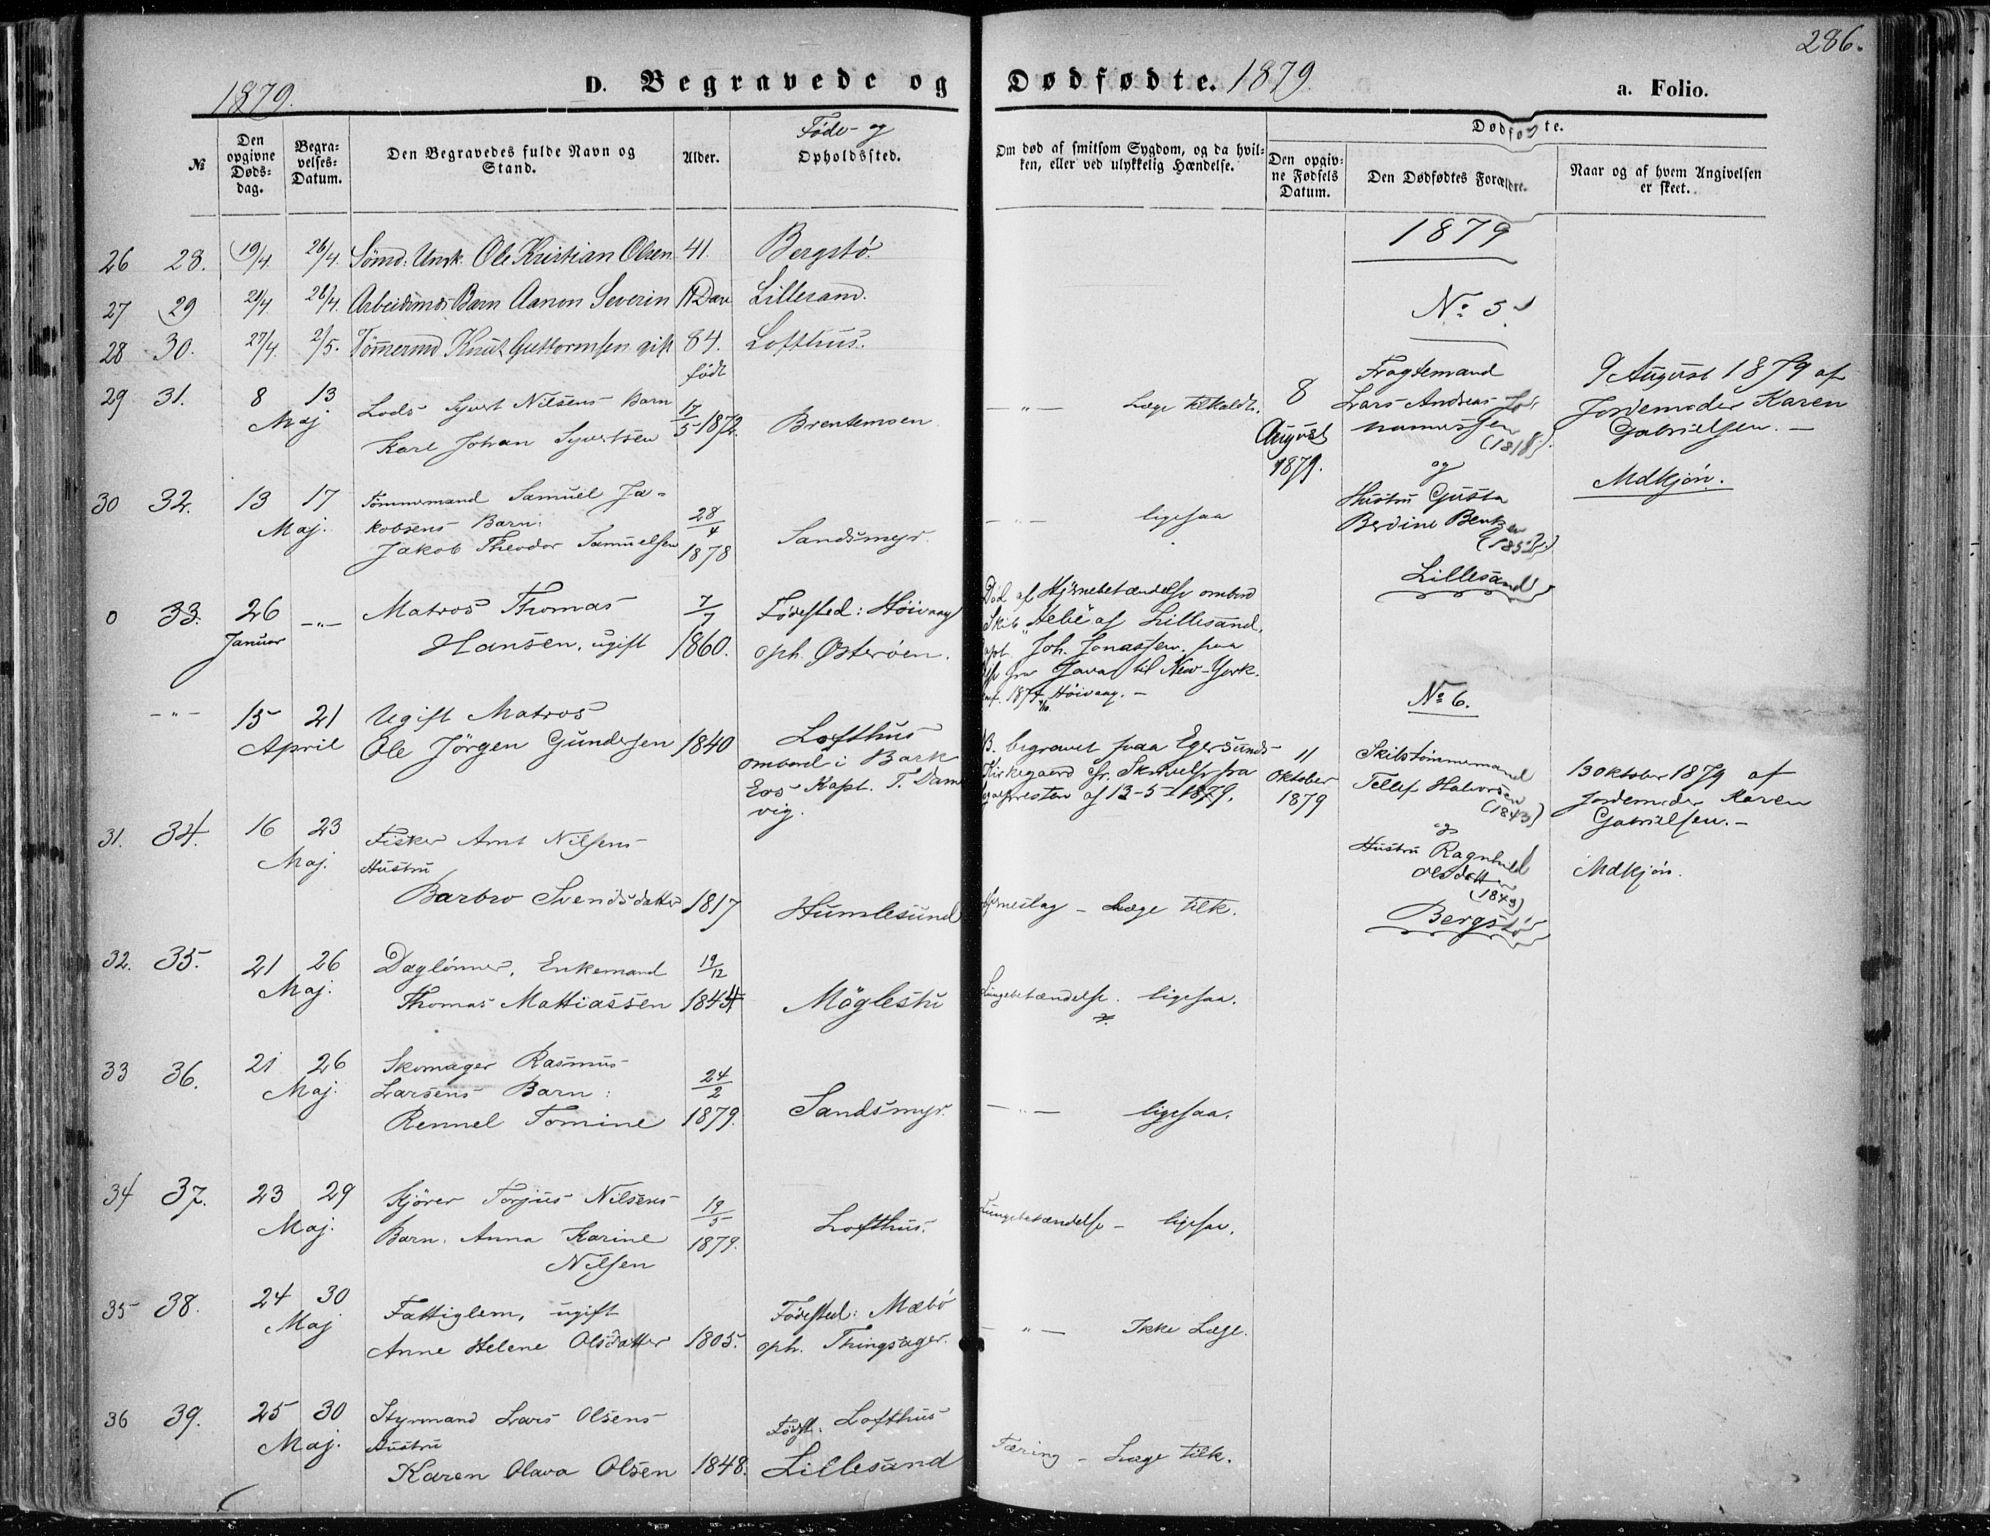 286.
1879.
D. Begravede og Dødfødte. 1879.
a. Folio.
№
Den opgivne Døds-dag.
Begra-velses-Datum.
Den Begravedes fulde Navn og Stand.
Alder.
Føde- og
Opholdssted.
Om død af smitsom Sygdom, og da hvil-
ken, eller ved ulykkelig Hændelse.
Dødfødte.
Den opgiv-
ne Fødsels
Datum.
Den Dødfødtes Forældre.
Naar og af hvem Angivelsen
er skeet.
26 28. 19/4 26/4 Sømd. Ungk. Ole Kristian Olsen 41. Bergstø.
27 29 21/4 26/4 Arbeidsmds Barn Aanon Severin Lillesand.
28 30. 27/4 2/5. Tømmermd Knut Guttormsen gift 84. Lofthus.
født
29 31. 8 13 Maj Lods Syvert Nilsens Barn
Karl Johan Syvertsen 17/5 1872. Brentemoen – " – Læge tilkaldt.
30 32. 13 17 Maj. Tømmermand Samuel Ja-
kobsens Barn:
Jakob Theodor Samuelsen 28/4 1878 Sandsmyr. – " – ligesaa
0 33. 26 Januar – " – Matros Thomas
Hansen, ugift 7/7 1860. Fødested: Høivaag
oph. Østerøen.
Død af Hjernebetændelse ombord
Skib "Hebe" af Lillesand,
Joh. Jonassen, paa
fra Java til New-York.
Høivaag. –
– " – 15 21 April Ugift Matros
Ole Jörgen Gundersen 1840 Lofthus
ombord i Bark
Eos Kapt. T. Dan
vig.
B. begravet paa Egersunds
Kirkegaard
presten af 13-5-1879.
31. 34. 16 23 Maj. Fisker Arnt Nilsens
Hustru
Barbro Svendsdatter 1817 Humlesund Hjerneslag – Læge tilk.
32. 35. 21 26 Maj. Daglønner, Enkemand
Thomas Mattiassen 19/12 1844 Möglestu Lungebetændelse. ligesaa.
33 36. 21 26 Maj. Skomager Rasmus
Larsens Barn:
Rennel Tomine 24/2 1879. Sandsmyr. – " – ligesaa.
34 37. 23 29 Maj. Kjörer Torjus Nilsens
Barn. Anna Karine
Nilsen 19/5 1879. Lofthus. Lungebetændelse – ligesaa.
35 38. 24 30 Maj Fattiglem, ugift
Anne Helene Olsdatter 1805. Fødested: Mæbö
oph. Thingsager. – " – Ikke Læge.
36 39. 25 30 Maj. Styrmand Lars Olsens
Hustru
Karen Olava Olsen 1848. Lofthus
Lillesand Tæring – Læge tilk.
1879
No 5
8
August
1879.
Fragtemand
Lars Andreas
(1818)
og
Hustru Gusta
Berdine
Lillesand
9 August 1879 af
Jordemoder Karen
Gabrielsen. –
Mdkjøn.
No 6.
11
Oktober
1879
Skibstømmermand
Tellef Halvorsen
(1843)
og
Hustru Ragnhild
Olsdatter
(1843)
Bergstø
13 Oktober 1879 af
Jordemoder Karen
Gabrielsen. –
Mdkjøn.